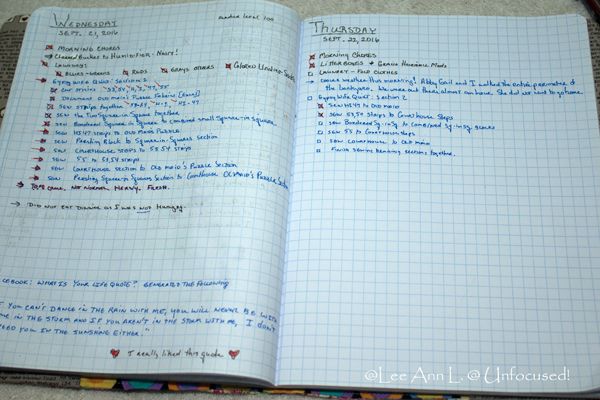 WEDNESDAY
SEPT. 21, 2016
MORNING CHORES
Cleared Bucket to Humidifier - Nasty!
LAUNDRY
BLUES - GREENS REDS GRAYS OTHERS Colored Linens
GYPSY WIFE QUILT: SECTION 2
Sew the Two Square in Square together
Sew Bordered Square in Square to combined small Square-in-Square
Sew HS 47 strips to Old Maid's Puzzle
Sew Pershing Block to Square-in-Squares section
Sew Courthouse Steps to 53, 54 strips
Sew 55 to 53, 54 strips
Sew Courthouse section to Old Maid's Puzzle Section
Sew Pershing Square-in-Squares Section to Courthouse Old Maid's Puzzle Section
CAME, NOT NORMAL HEAVY,
Did NOT EAT DINNER AS I WAS NOT Hungry.
CEBOOK: WHAT IS YOUR LIFE QUOTE? GENERATED THE FOLLOWING
F YOU CAN'T DANCE IN THE RAIN WITH ME, YOU WILL NEVER BE WITH
ME IN THE STORM AND IF YOU AREN'T IN THE STORM WITH ME, I DON'T
EED YOU IN THE SUNSHINE EITHER."
I really liked this quote
THURSDAY
SEPT. 22, 2016
Morning Chores
LITTER BOXES &
LAUNDRY - FOLD CLOTHES
weather this morning! Abby Gail and I walked the entire perimeter of
the backyard. We were out there almost an hour. She did not want to go home.
Gypsy Wife Quilt: Section 2
Sew HS 47 to Old Maid
Sew 53, 54 Strips to Courthouse Steps
Sew Bordered Sq-in-Sq to combined Sq-in-Sq
Sew 55 to Courthouse Steps
Sew Courthouse to Old Maid
Finish sewing remaining sections together.
@Lee Ann L. @ Unfocused!